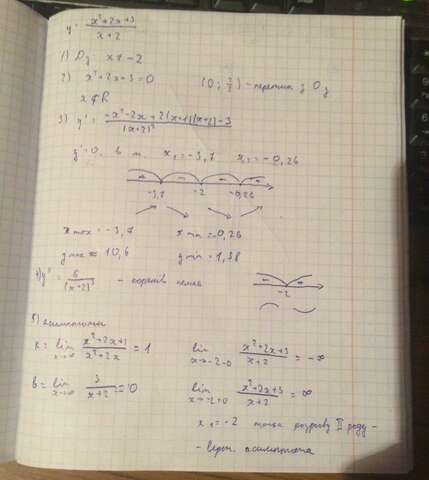 y = (x²+2x+3)/(x+2)
1) Dy x≠-2
2) x²+2x+3=0 (0; 3/2) - перетин з Oy
x ∉ R
3) y' = (-x²-2x+2(x+1)(x+2)-3)/(x+2)²
y'=0 в т. x₁=-3,7 x₂=-0,26
+ - - +
-3,7 -2 -0,26
x max = -3,7 x min = -0,26
y max ≈ y min =
4) y'' = 6/(x+2)³ - коренів немає
-2
5) асимптоты
k = lim x→∞ (x²+2x+3)/(x²+2x) = 1 lim x→-2-0 (x²+2x+3)/(x+2) = -∞
b = lim x→∞ 3/(x+2) = 0 lim x→-2+0 (x²+2x+3)/(x+2) = ∞
x₁ = -2 точка розриву II роду -
- верт. асимптота